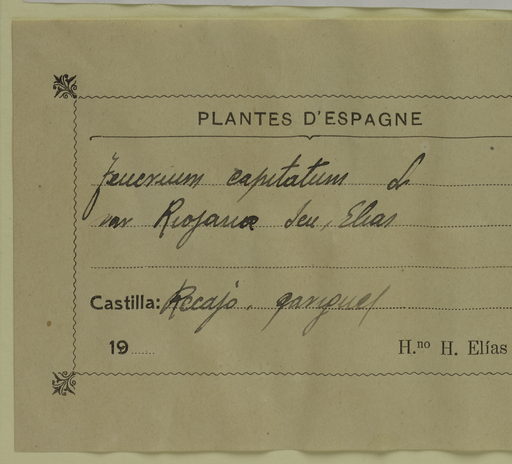 PLANTES D'ESPAGNE
Teucrium capitatum L
var Riojana Sen, Elias
Castilla: Recajo, garigues
19
H.no H. Elías